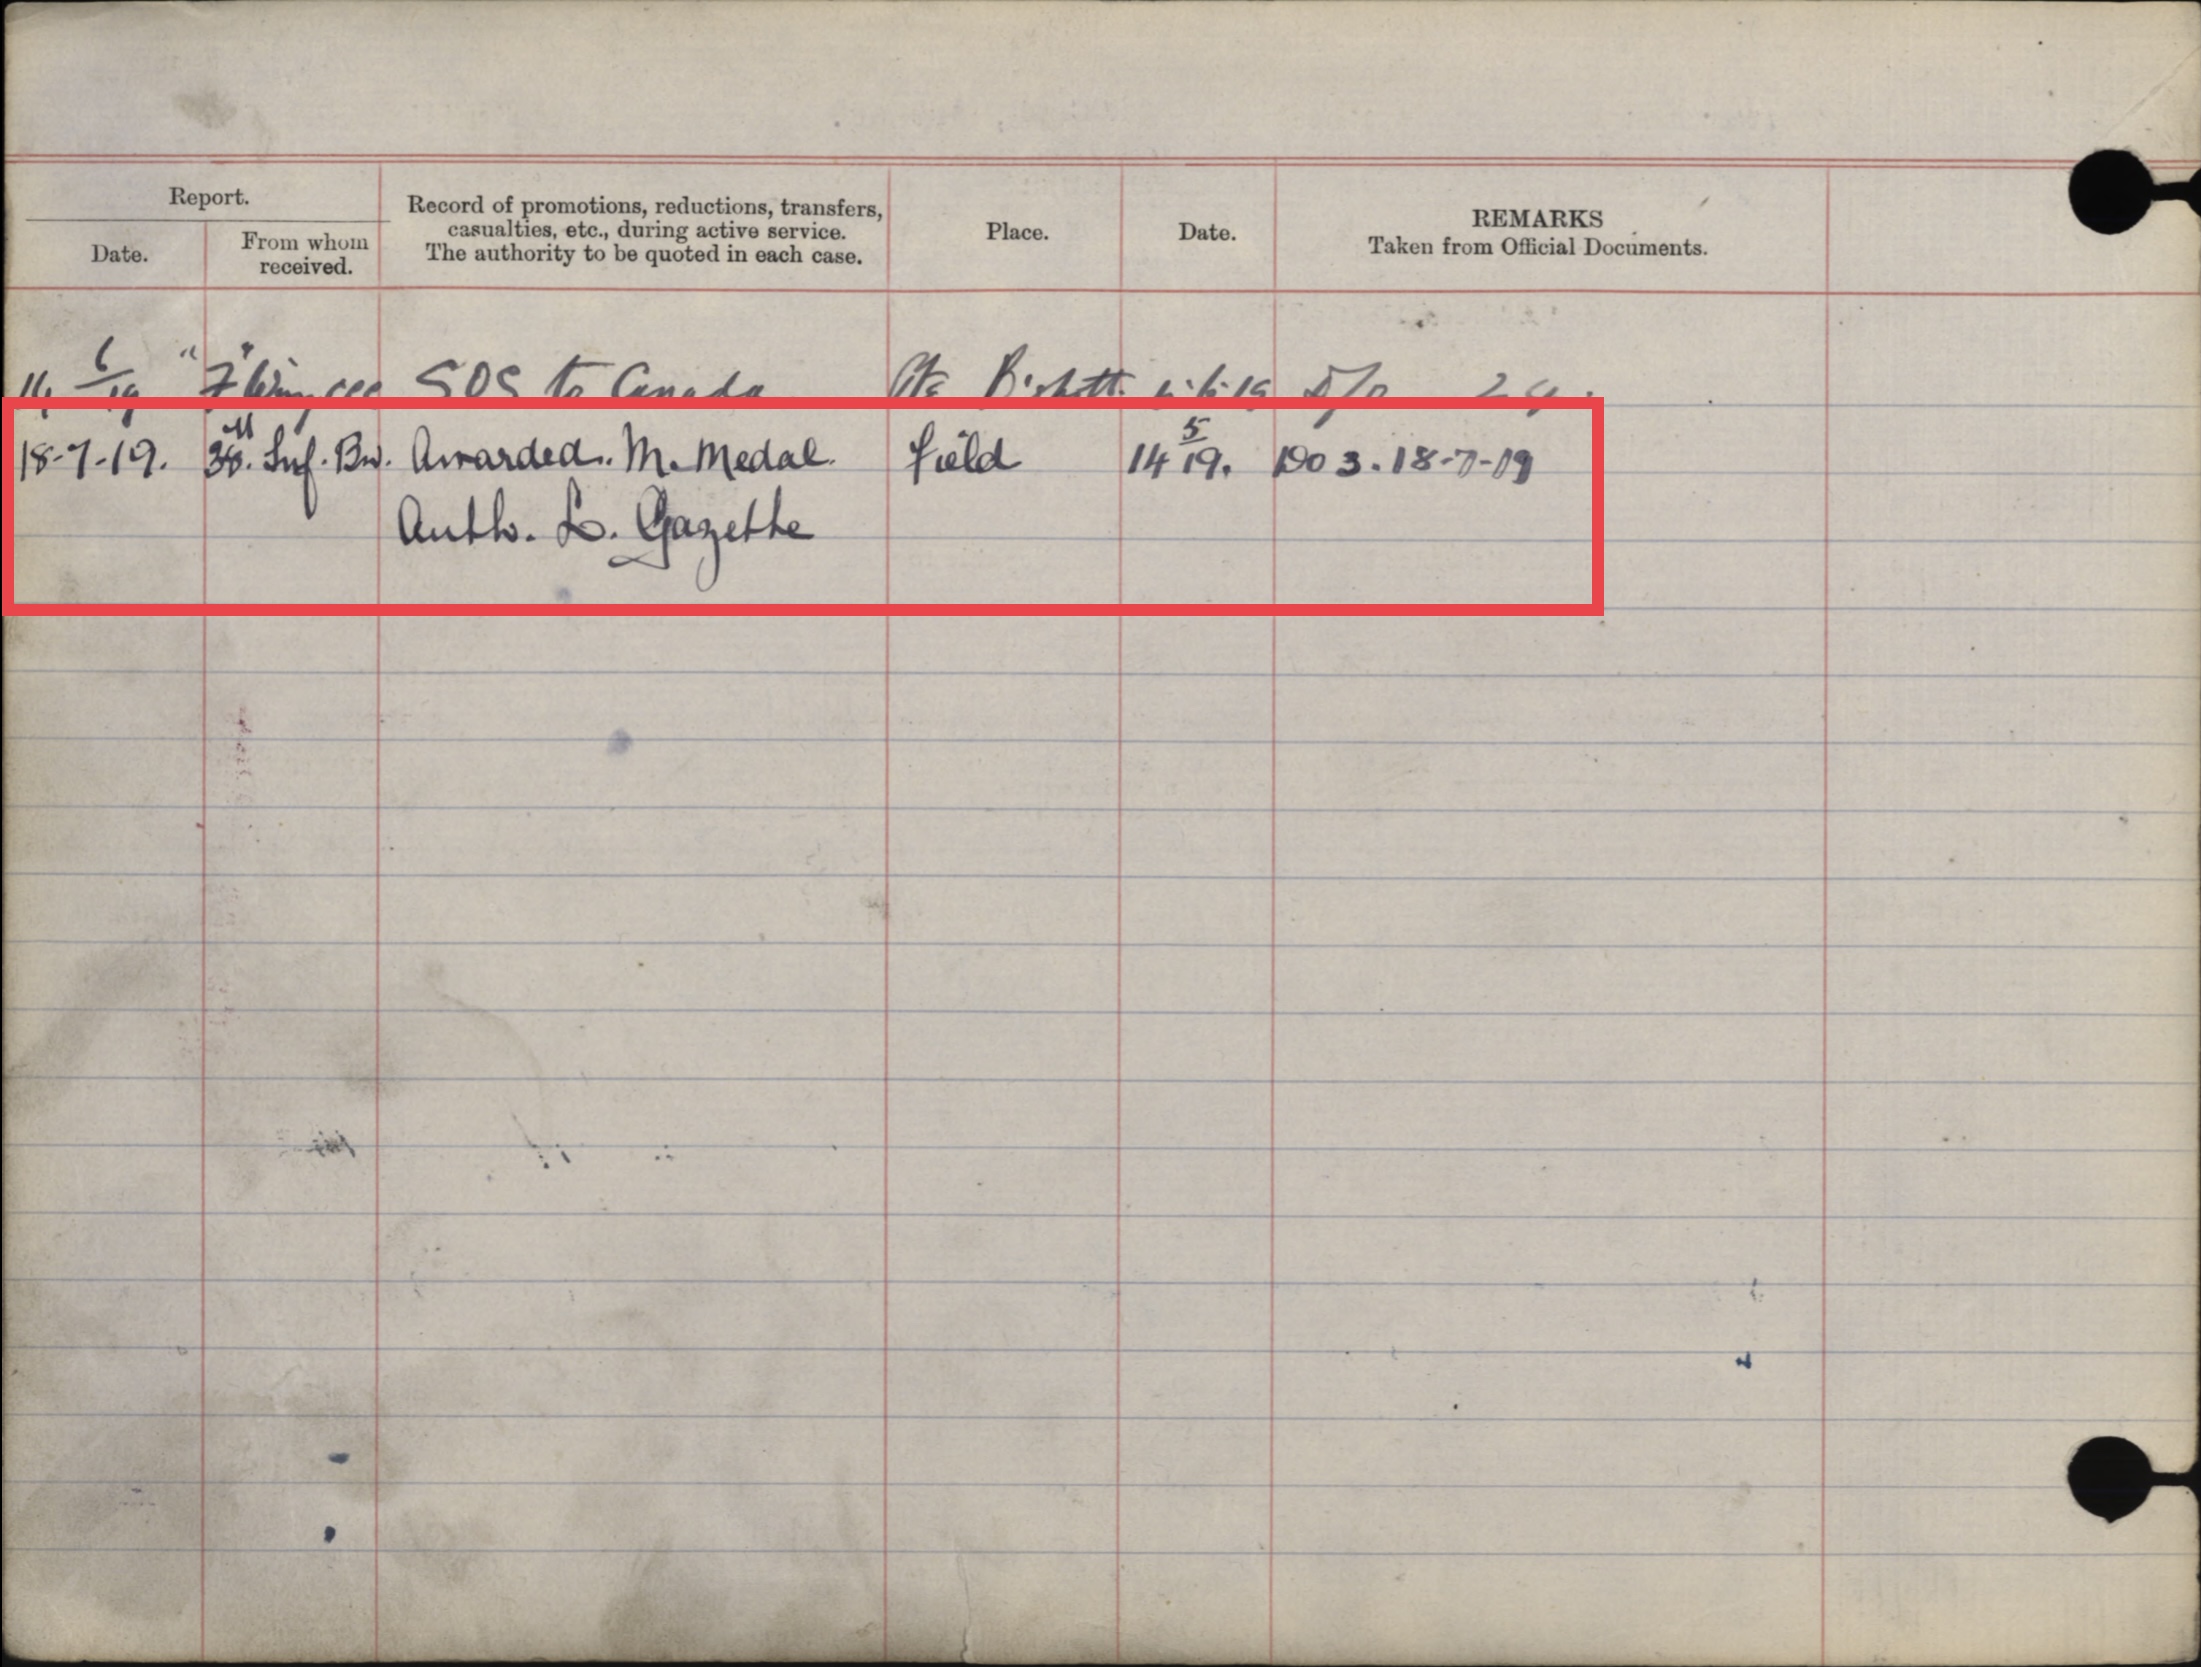 Report.
Date.
From whom
received.
Record of promotions, reductions, transfers,
casualties, etc., during active service.
The authority to be quoted in each case.
Place.
Date.
REMARKS
Taken from Official Documents.
14 6/19 "F" Wing ccc SOS to Canada 6.6.19 D/O 24
18-7-19. 38. Inf. Bn. Awarded. M. Medal. Field 14 5/19. DO 3. 18-7-19
Auth. L. Gazette